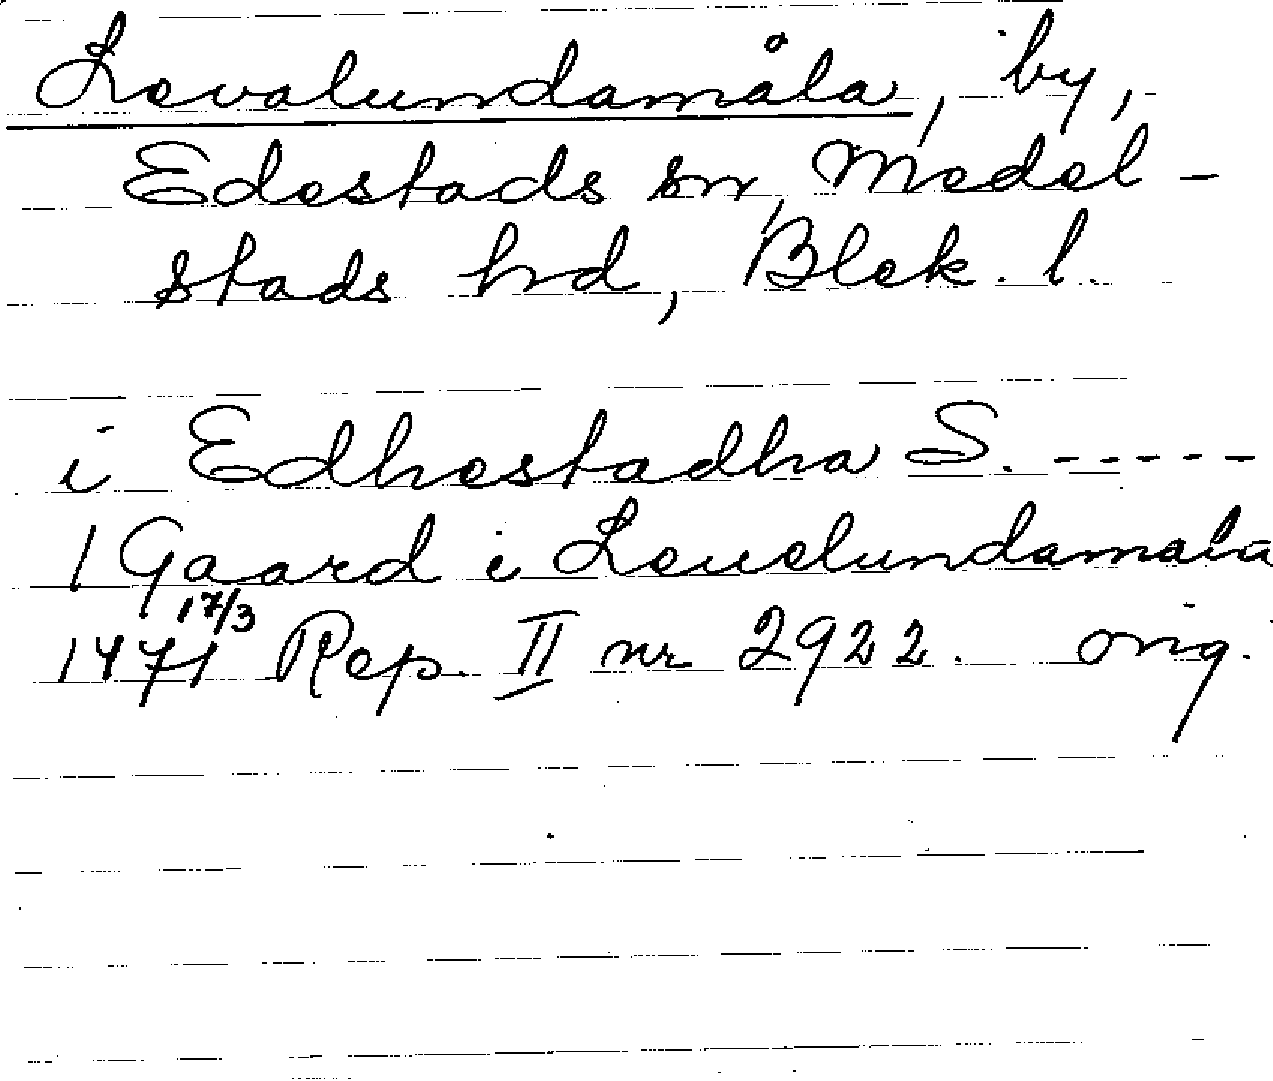 Levalundamåla, by,
Edestads sn, Medel-
stads hd, Blek. l.
i Edhestadha S. -----
1 Gaard i Leuelundamala
17/3
1471 Rep. II nr 2922. orig.